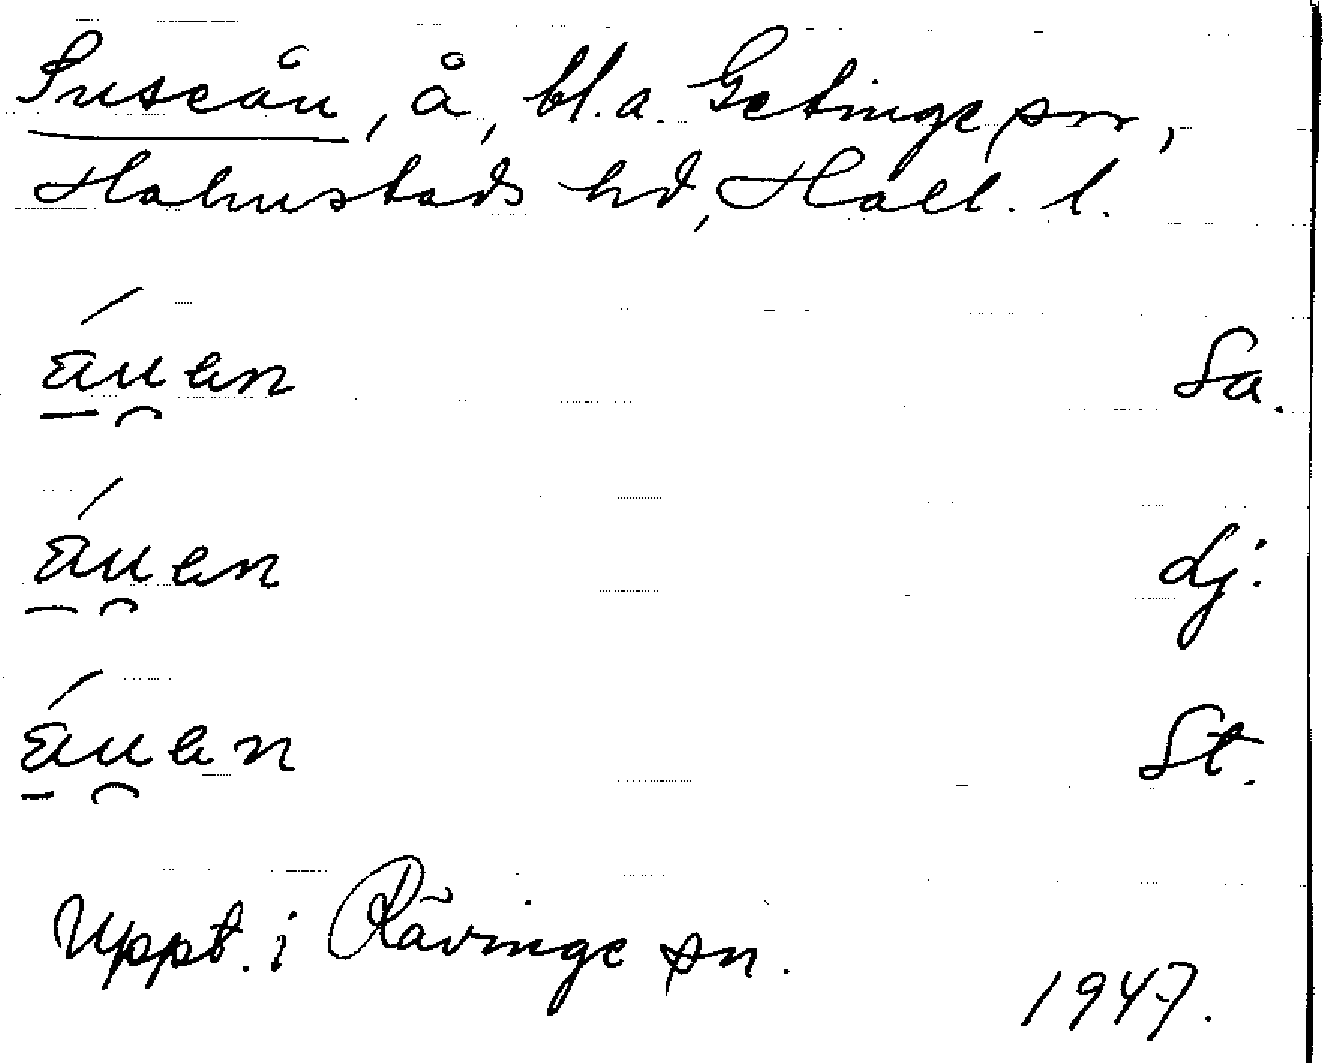 Suseån, å, bl.a. Getinge sn,
Halmstads hd, Hall. l.
áu̯en Sa.
áu̯en dj:
áu̯en St.
Uppt. i Rävinge sn.
1947.